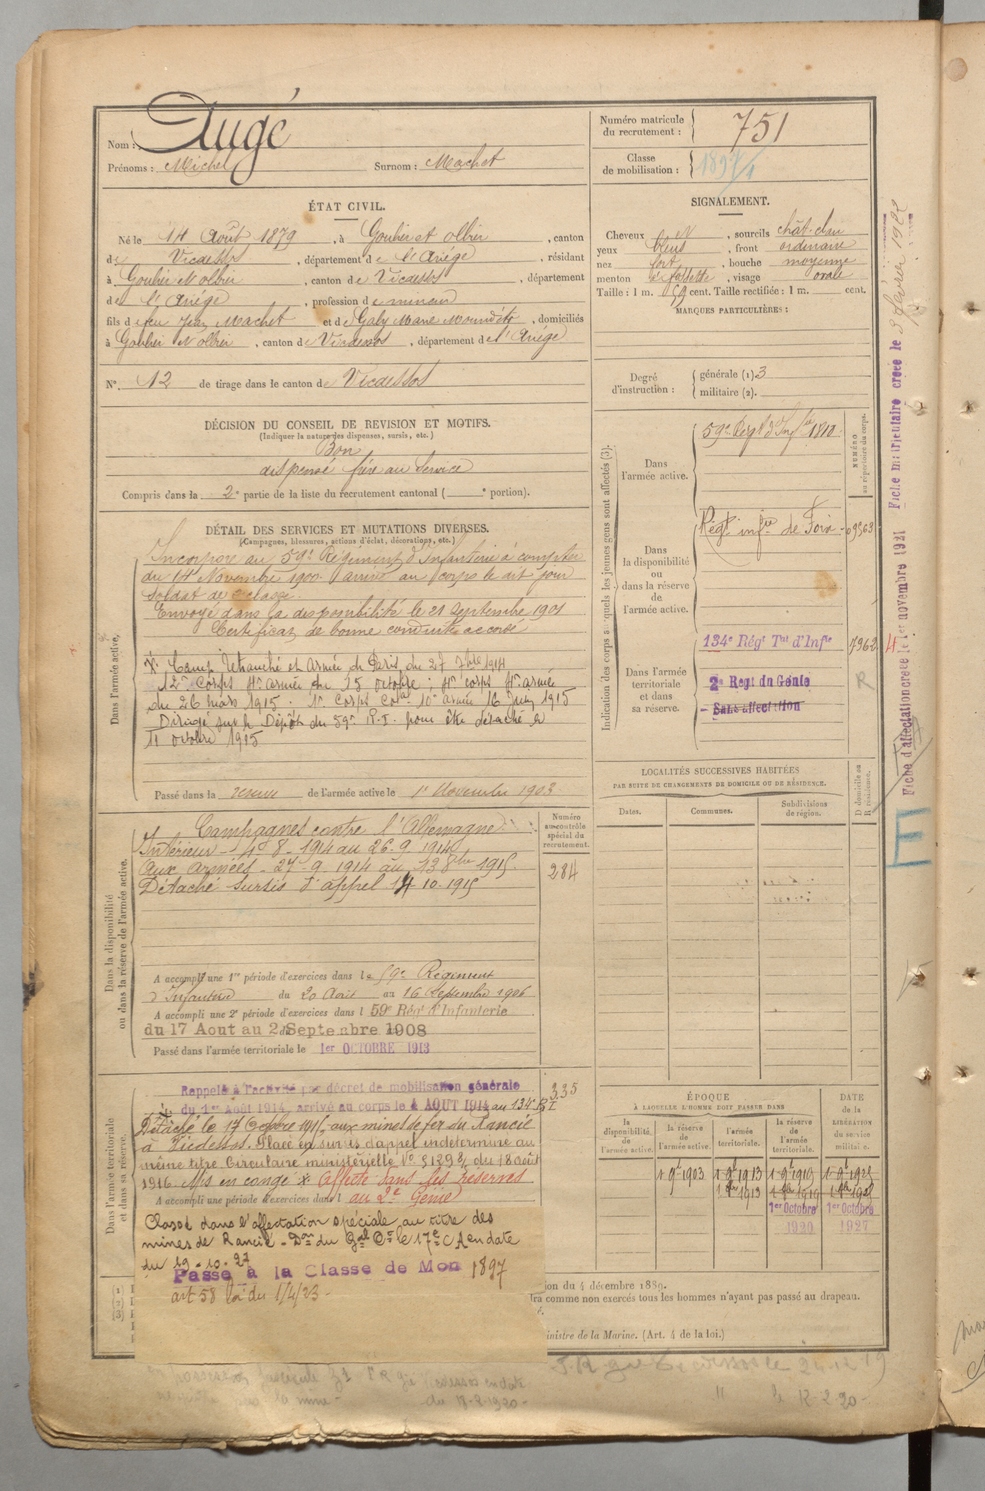 Nom : Augé
Prénoms : Michel Surnom : Machet
ÉTAT CIVIL.
Né le 14 Août 1879, à Goulier et Olbier, canton
de Vicdessos, département de l'Ariége, résidant
à Goulier et Olbier, canton de Vicdessos, département
de l'Ariége, profession de mineur
fils de feu Jean Machet et de Galy Marie, domiciliés
à Goulier et Olbier, canton de Vicdessos, département de l'Ariége
N° 12 de tirage dans le canton de Vicdessos
DÉCISION DU CONSEIL DE REVISION ET MOTIFS.
(Indiquer la nature des dispenses, sursis, etc.)
Bon
dispensé frère au service
Compris dans la 2e partie de la liste du recrutement cantonal ( e portion).
DÉTAIL DES SERVICES ET MUTATIONS DIVERSES.
(Campagnes, blessures, actions d'éclat, décorations, etc.)
Dans l'armée active.
Incorporé au 59e Régiment d'Infanterie à compter
du 14 Novembre 1900 arrivé au corps le dit jour
soldat de 2e classe.
Envoyé dans la disponibilité le 21 Septembre 1901
Certificat de bonne conduite accordé
Camp Retranché et Armée de Paris du 27 7bre 1914
12e Corps 4e armée du 15 octobre : 4e corps 4e armée
du 26 mars 1915 : 1er Corps Col. 10e armée 16 Juin 1915
Dirigé sur le Dépôt du 59e R.I. pour être détaché le
11 octobre 1915
Passé dans la réserve de l'armée active le 1er Novembre 1903
Dans la disponibilité
ou dans la réserve de l'armée active.
Campagnes contre l'Allemagne
Intérieur - 4-8-1914 au 26-9-1914
Aux armées - 27-9-1914 au 13 8bre 1915
Détaché sursis d'appel 14-10-1915
Numéro
au contrôle
spécial du
recrutement.
284
A accompli une 1re période d'exercices dans le 59e Régiment
d'Infanterie du 20 Août au 16 Septembre 1906
A accompli une 2e période d'exercices dans l 59e Rég't d'Infanterie
du 17 Aout au 2 Septembre 1908
Passé dans l'armée territoriale le 1er OCTOBRE 1913
Dans l'armée territoriale
et dans sa réserve.
Rappelé à l'activité par décret de mobilisation générale
du 1er Août 1914, arrivé au corps le 4 AOUT 1914 au 134e RTI
335
Détaché le 17 Octobre 1915 aux mines de fer du Rancié
à Vicdessos. Placé en sursis d'appel indeterminé au
même titre. Circulaire ministérielle N° du 18 août
1916. Mis en congé x affecté dans les réserves
A accompli une période d'exercices dans l au 2e Génie
Classé dans l'affectation spéciale au titre des
mines de Rancié - Don du Gal Ct le 17e CA en date
du 19-10-27
Passé à la Classe de Mon 1897
art 58 loi du 1/4/23 -
Numéro matricule
du recrutement : 751
Classe
de mobilisation : 1897/1
SIGNALEMENT.
Cheveux N, sourcils chât. clair
yeux bleus, front ordinaire
nez fort, bouche moyenne
menton à fossette, visage ovale
Taille : 1 m. 59 cent. Taille rectifiée : 1 m. cent.
MARQUES PARTICULIÈRES :
Degré
d'instruction :
générale (1) 3
militaire (2).
Indication des corps auxquels les jeunes gens sont affectés (3).
NUMÉRO
au répertoire du corps.
Dans
l'armée active.
59e Régt d'Infrie 1810
Dans
la disponibilité
ou
dans la réserve
de
l'armée active.
Régt infrie de Foix - 09963
Dans l'armée
territoriale
et dans
sa réserve.
134e Régt Tal d'Infie 7962
2e Regt du Génie
Sans affectation
R
LOCALITÉS SUCCESSIVES HABITÉES
PAR SUITE DE CHANGEMENTS DE DOMICILE OU DE RÉSIDENCE.
D domicile ou
R résidence.
Dates. Communes. Subdivisions
de région.
ÉPOQUE
À LAQUELLE L'HOMME DOIT PASSER DANS
DATE
de la
LIBÉRATION
du service
militaire.
la
disponibilité
de
l'armée active.
la réserve
de
l'armée active.
l'armée
territoriale.
la réserve
de
l'armée
territoriale.
1 9bre 1903 1 9bre 1913 1 9bre 1919 1 9bre 1925
1 8bre 1913
1er Octobre 1er Octobre
1920 1927
ion du 4 décembre 1889.
dra comme non exercés tous les hommes n'ayant pas passé au drapeau.
inistre de la Marine. (Art. 4 de la loi.)
Fiche d'affectation créée le 1er novembre 1921 Fiche matriculaire créée le 3 février 1922
E
du 17-2-1920 -
24-12-19
" le 12-2-20 -